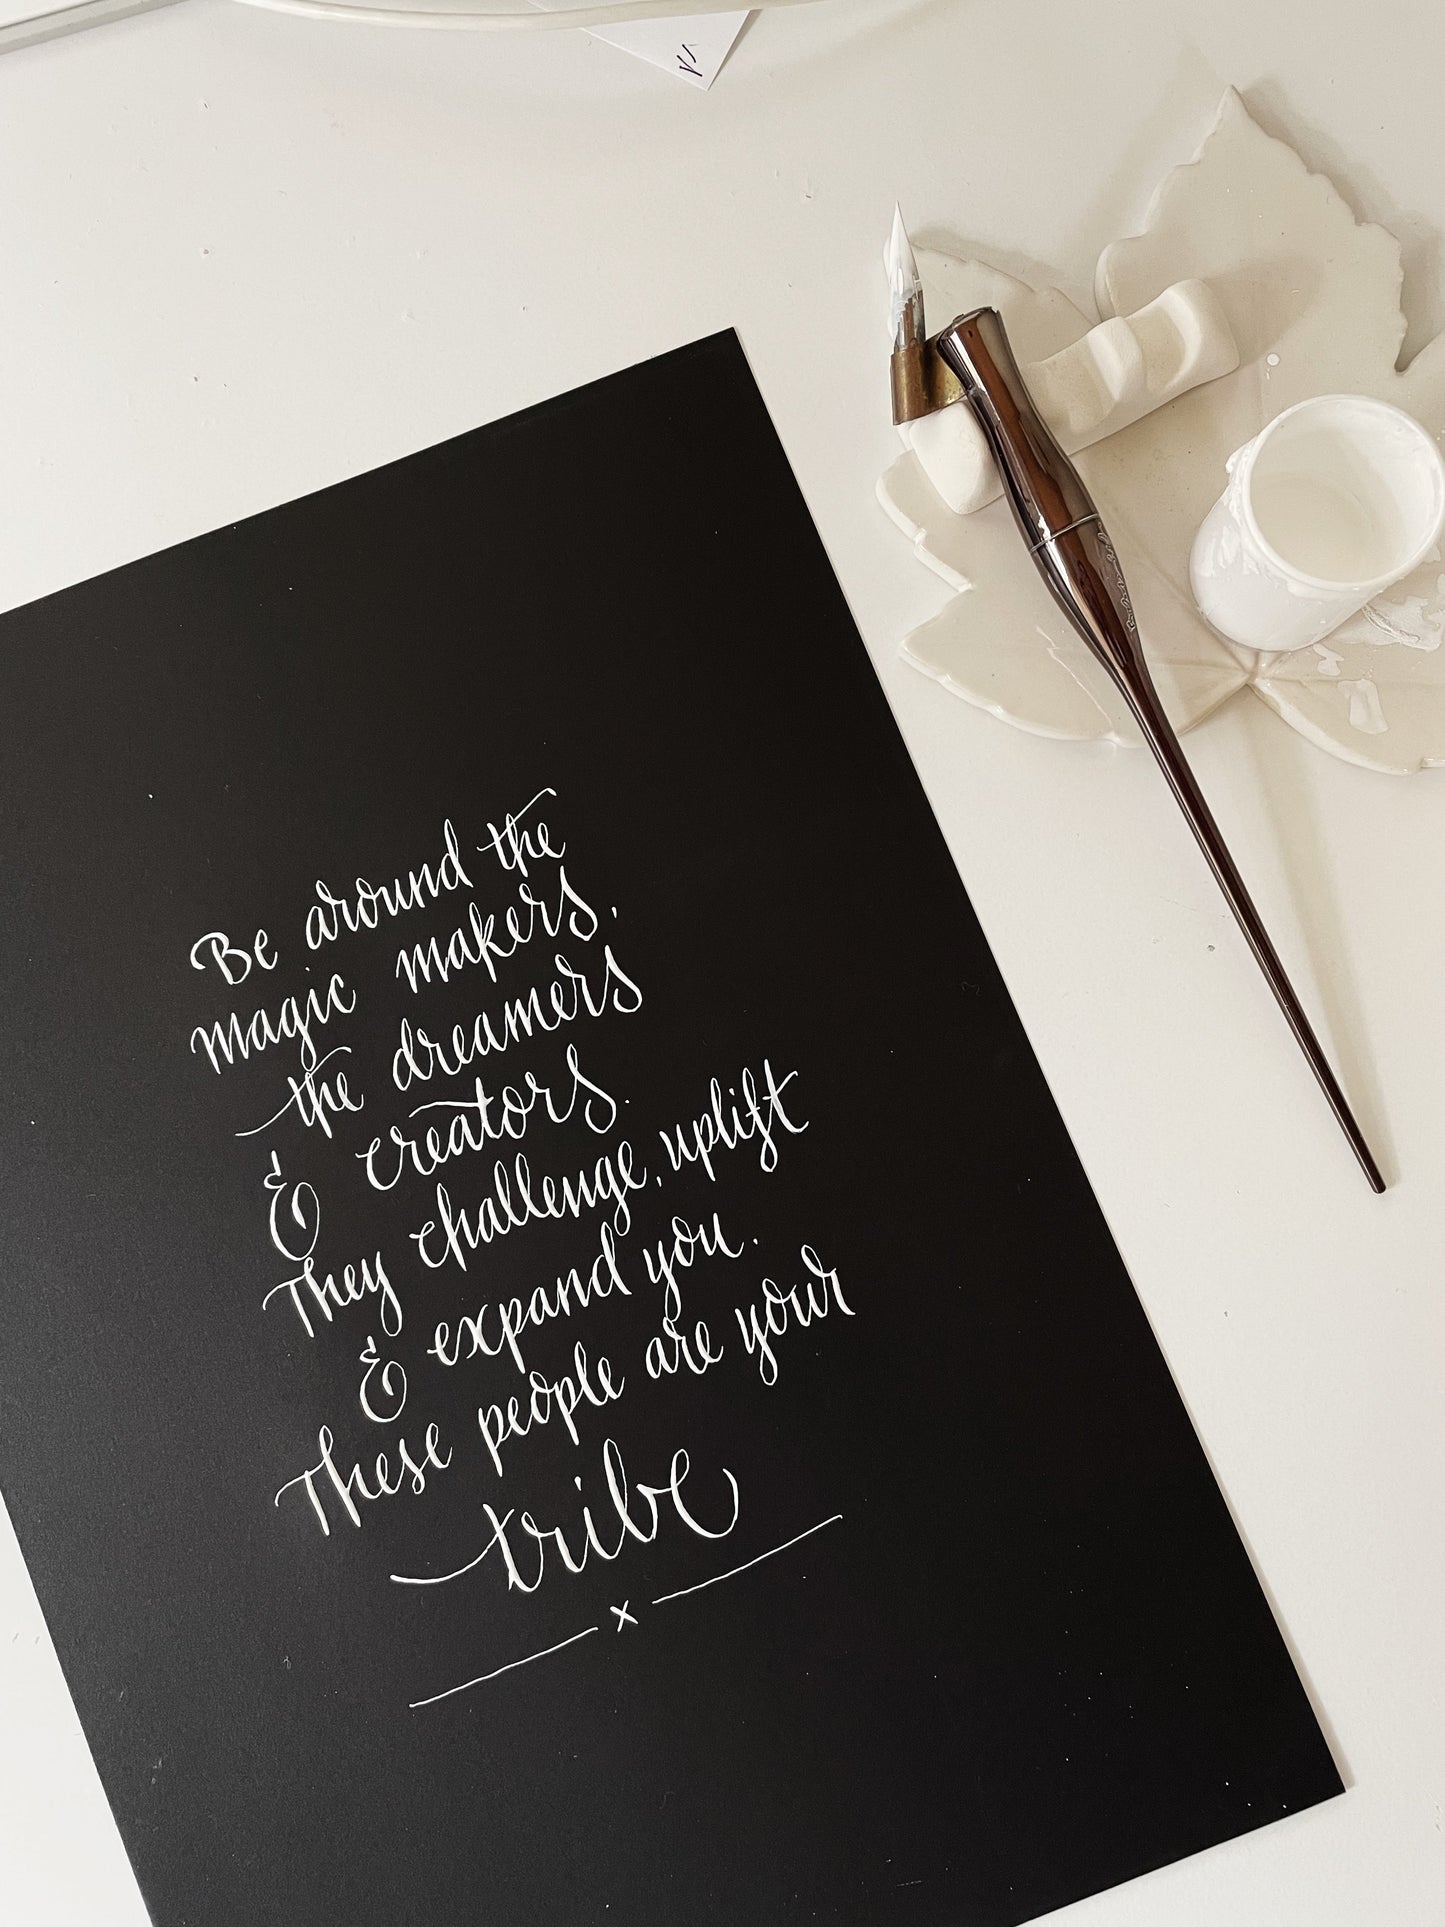 Be around the
magic makers,
the dreamers
& creators.
They challenge, uplift
& expand you.
These people are your
tribe
x